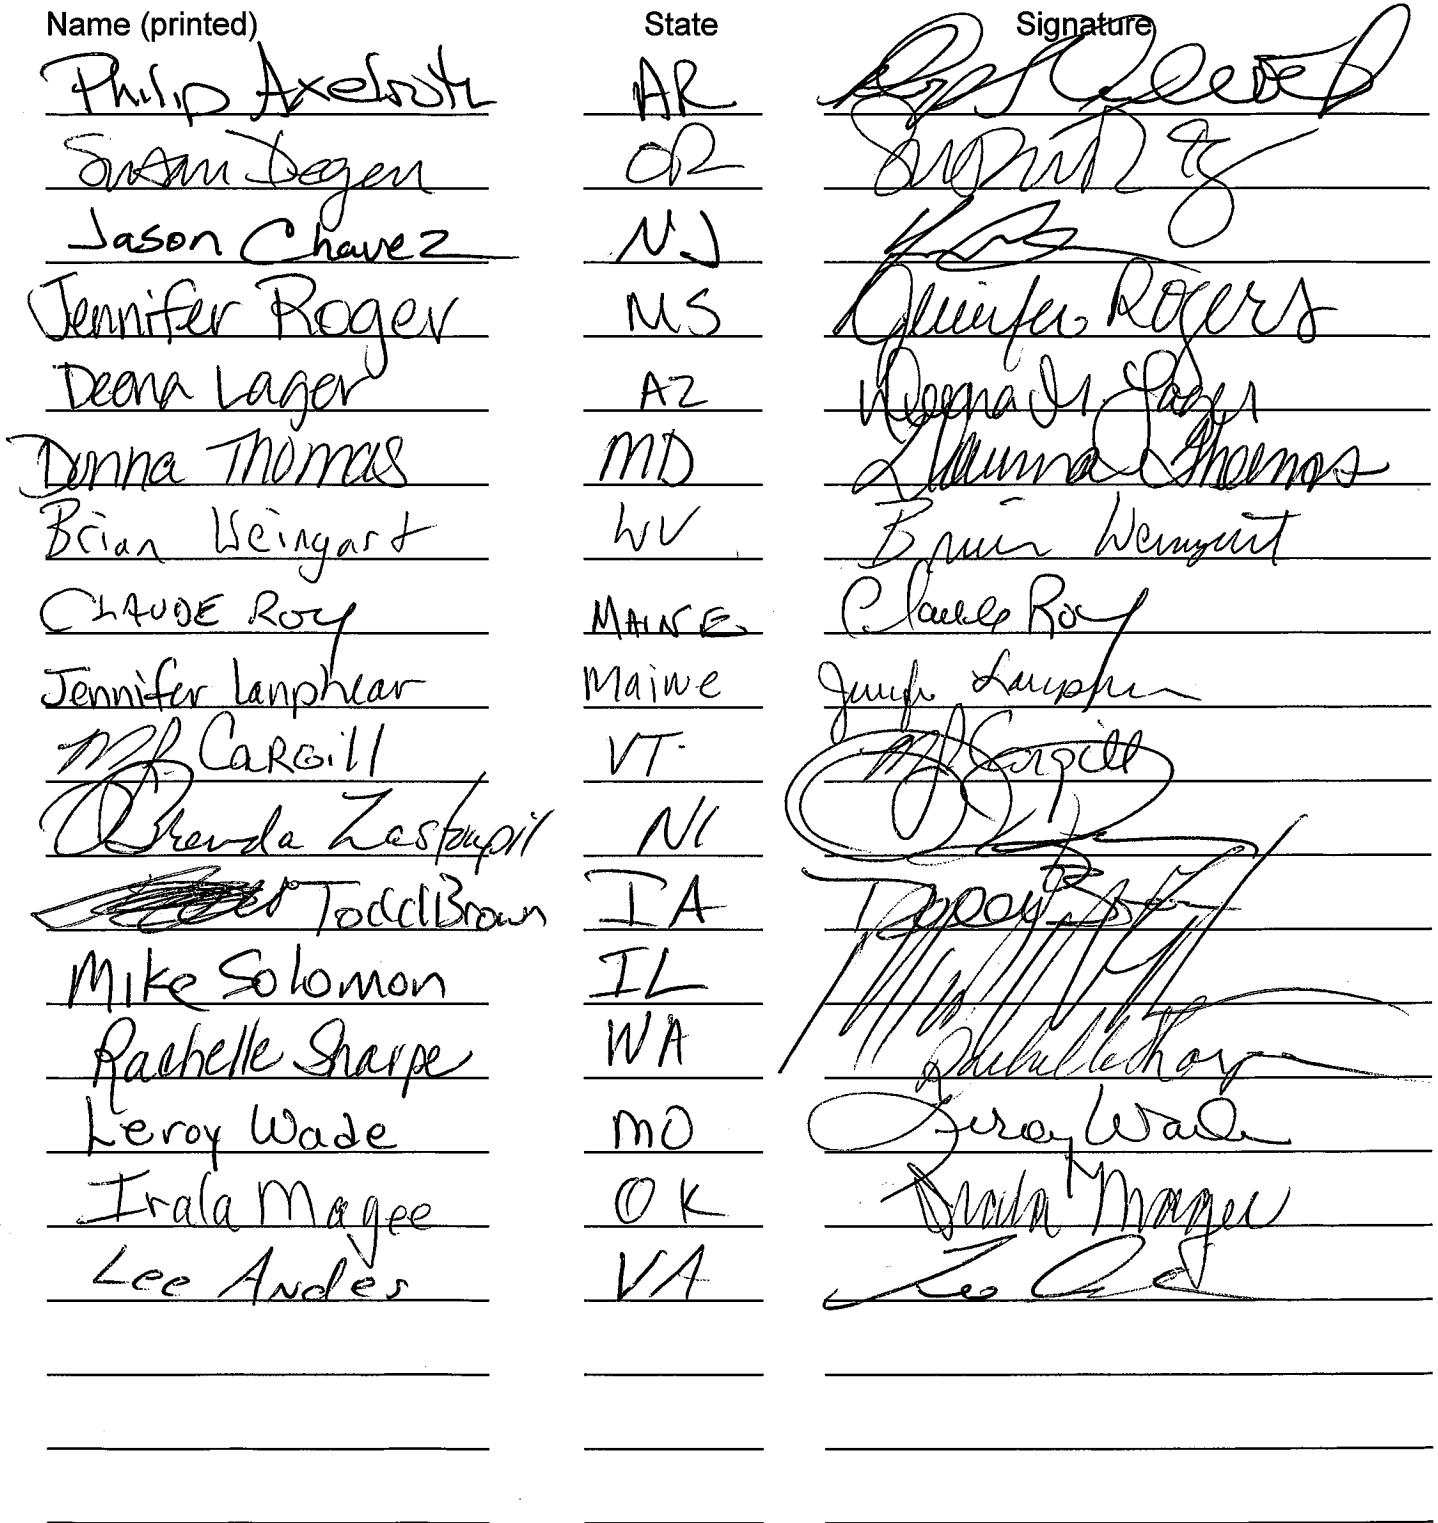 Name (printed) State Signature
Philip Axelroth AR
Susan Degen OR
Jason Chavez NJ
Jennifer Roger MS Jennifer Rogers
Deena Lager AZ Deena M. Lager
Donna Thomas MD Donna Thomas
Brian Weingart WV Brian Weingart
CLAUDE Roy MAINE Claude Roy
Jennifer Lanphear Maine Jennifer Lanphear
MJ. CARGill VT. MJ Cargill
Brenda Zastoupil
Todd Brown IA
Mike Solomon IL
Rachelle Sharpe WA Rachelle Sharpe
Leroy Wade MO Leroy Wade
Irala Magee OK Irala Magee
Lee Andes VA Lee